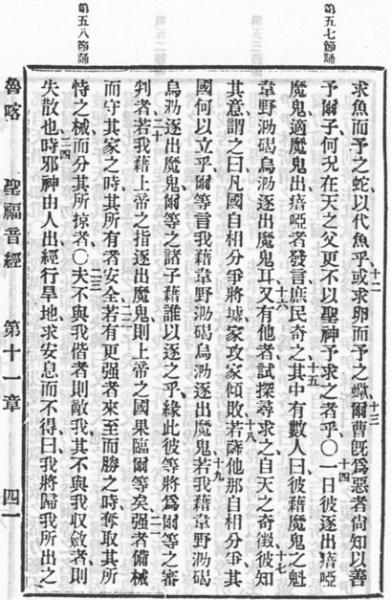 第五七節誦
第五八節誦
求魚而予之蛇以代魚乎十二或求卵而予之蠍十三爾曹旣爲惡者尙知以善
予爾子何況在天之父更不以聖神予求之者乎〇十四一日彼逐出瘖啞
魔鬼適魔鬼出瘖啞者發言庶民奇之十五其中有數人曰彼藉魔鬼之魁
韋野泐碣烏泐逐出魔鬼耳十六又有他者試探尋求之自天之奇徵十七彼知
其意謂之曰凡國自相分爭將墟家攻家傾敗十八若薩他那自相分爭其
國何以立乎爾等言我藉韋野泐碣烏泐逐出魔鬼十九若我藉韋野泐碣
烏泐逐出魔鬼爾等之諸子藉誰以逐之乎緣此彼等將爲爾等之審
判者二十若我藉上帝之指逐出魔鬼則上帝之國果臨爾等矣二一强者備械
而守其家之時其所有者安全二二若有更强者來至而勝之時奪取其所
恃之械而分其所掠者〇二三夫不與我偕者則敵我其不與我收斂者則
失散也二四時邪神由人出經行旱地求安息而不得曰我將歸我所出之
魯喀 聖福音經 第十一章 四一